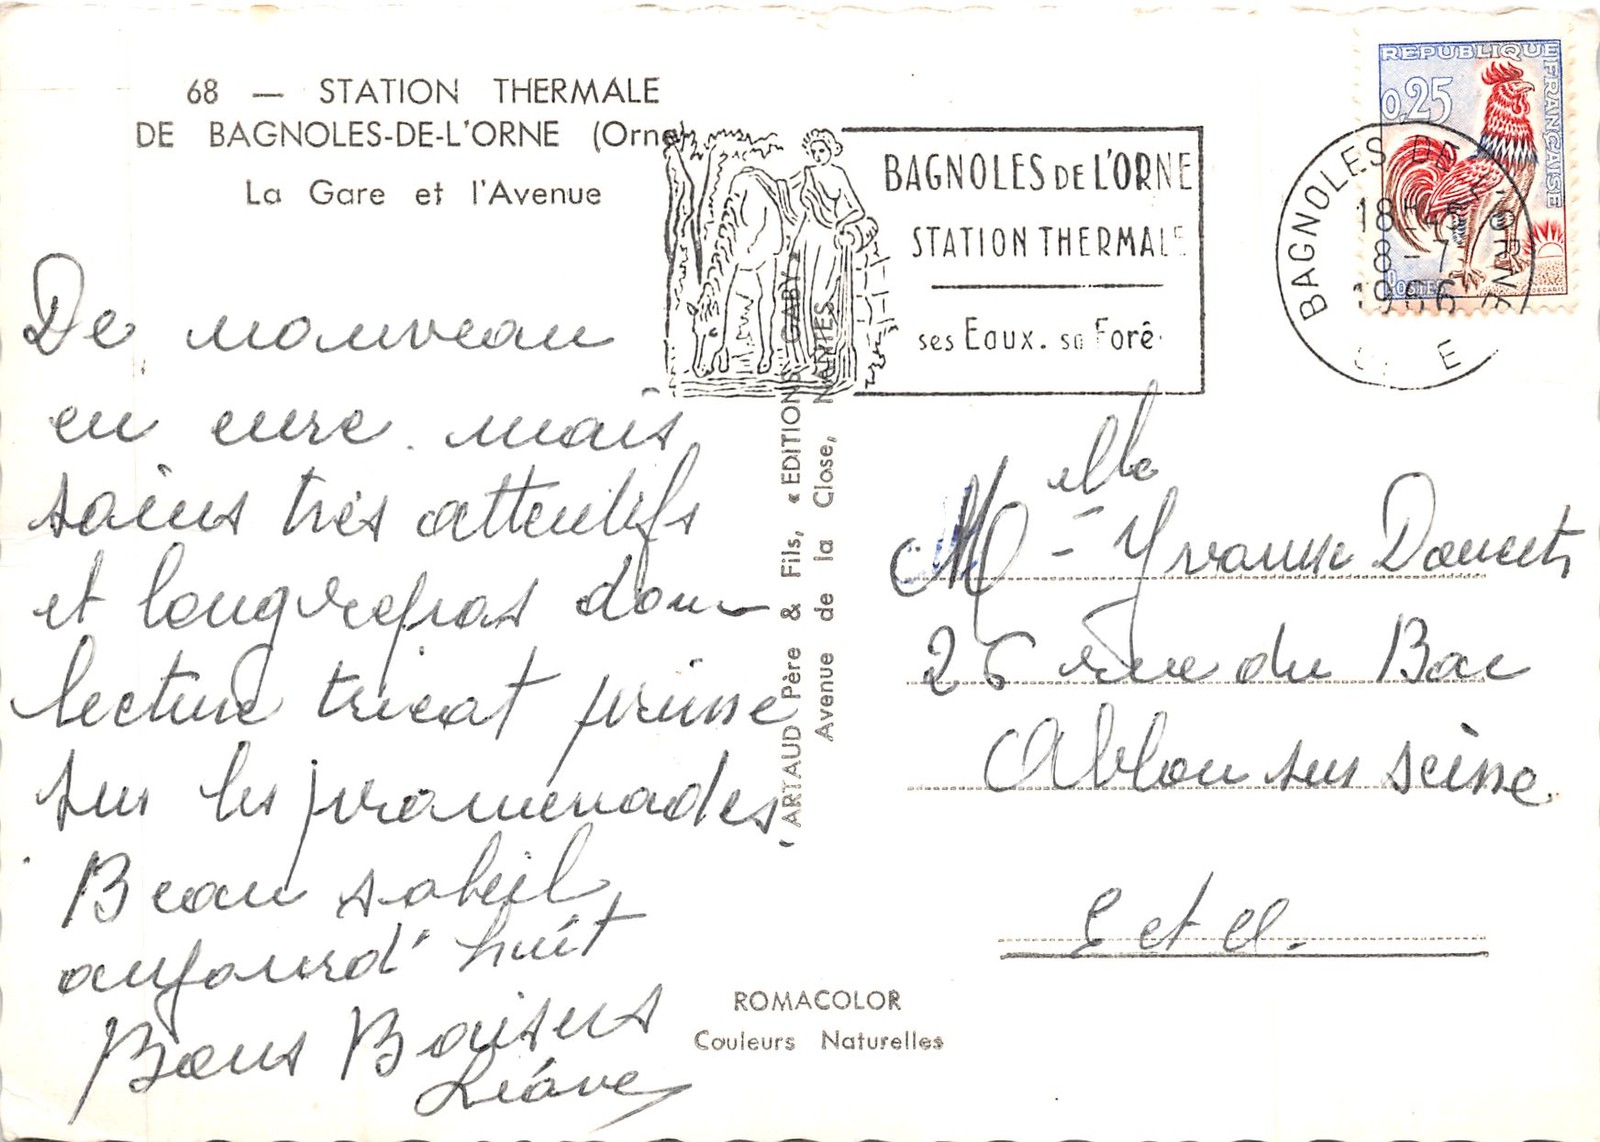 68 — STATION THERMALE
DE BAGNOLES-DE-L'ORNE (Orne)
La Gare et l'Avenue
De nouveau
en cure. mais
soins très attentifs
et long repos donc
lecture tricot prime
sur les promenades
Beau soleil
aujourd'huit
Bons Baisers
ARTAUD Père & Fils, « EDITIONS GABY »
Avenue de la Close, NANTES
BAGNOLES DE L'ORNE
STATION THERMALE
ses Eaux. sa Forê
REPUBLIQUE FRANÇAISE
0,25
POSTES
BAGNOLES DE L'ORNE
18H
8-7
1966
Melle Yvonne Doucet
26 rue du Bac
Ablon sur seine
S et O.
ROMACOLOR
Couleurs Naturelles